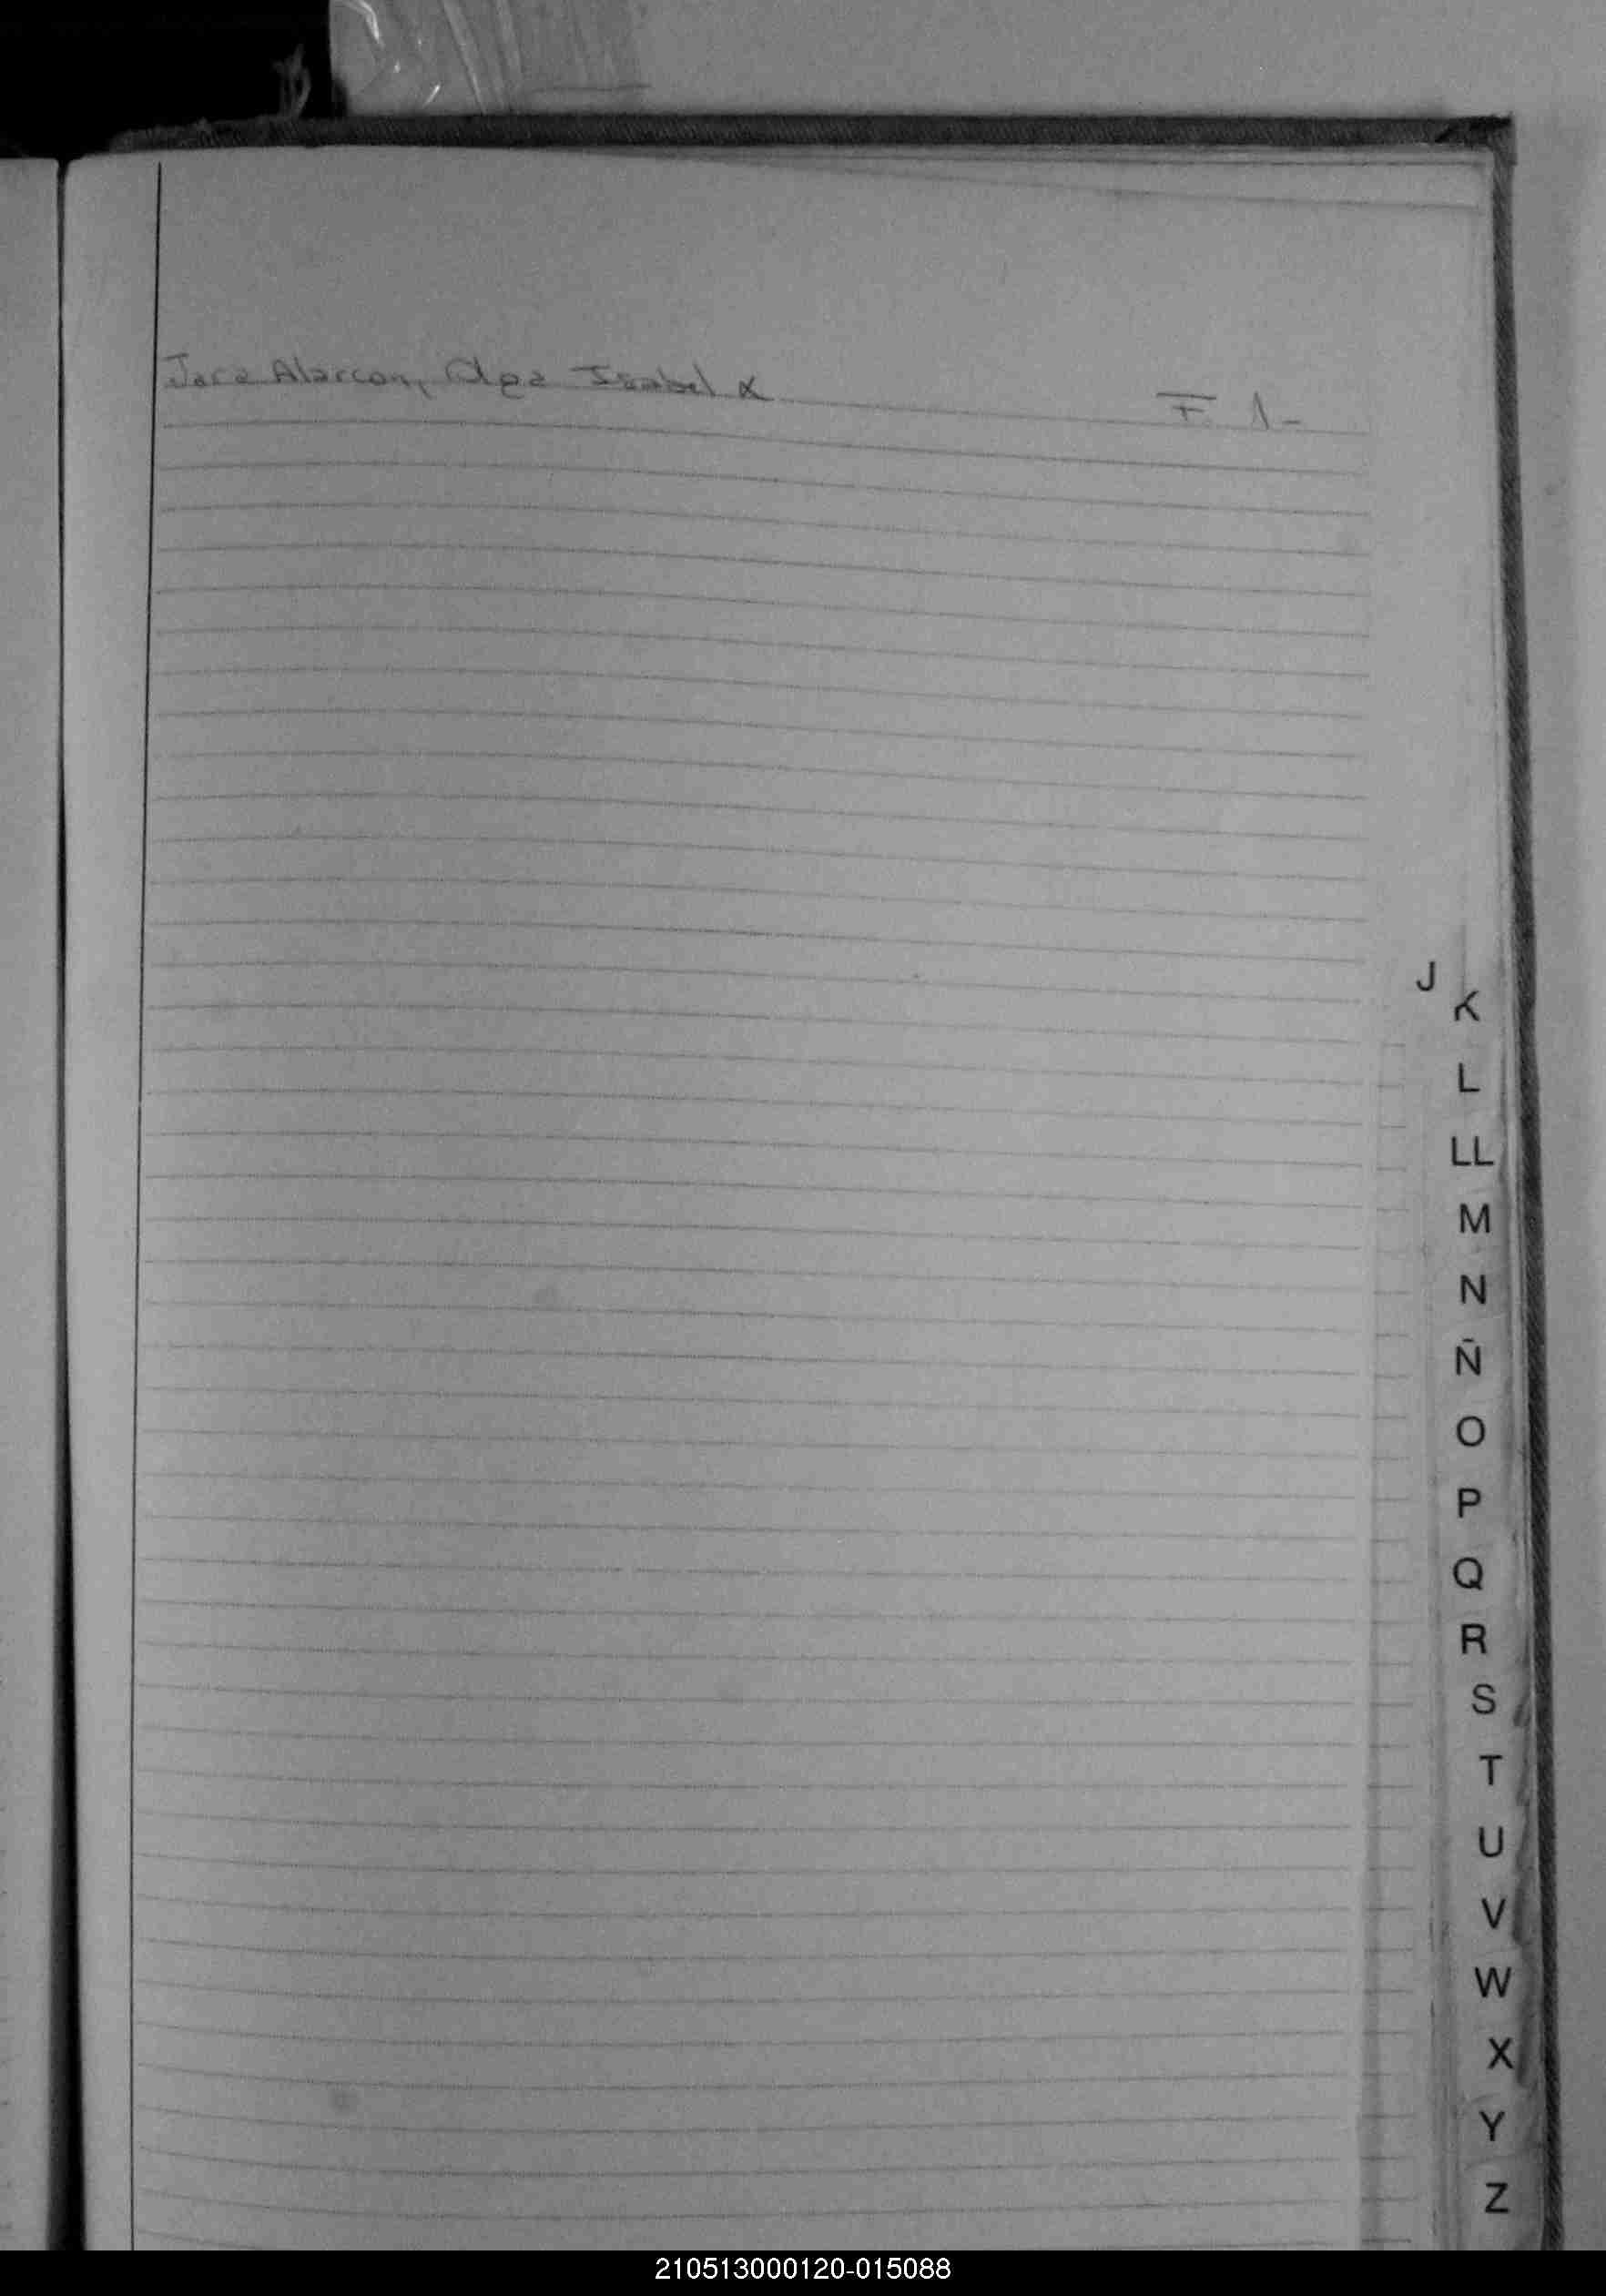 Jara Alarcon, Olga Isabel α F. 1-
J
K
L
LL
M
N
Ñ
O
P
Q
R
S
T
U
V
W
X
Y
Z
210513000120-015088